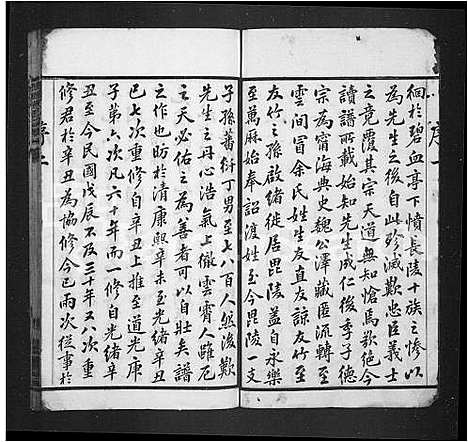 徊於碧血亭下憤長陵十族之慘以
為先生之後自此殄滅歎忠臣義士
之竟覆其宗天道無知愴焉欲絕今
讀譜所載始知先生成仁後季子德
宗為甯海典史魏公澤藏匿流轉至
雲間冒余氏姓生友直友諒友竹至
友竹之孫啟緒徙居毘陵蓋自永樂
至萬麻始奉詔渡姓至今毘陵一支
子孫蕃衍丁男至七八百人然後歎
先生之丹心浩氣上徹雲霄人雖厄
之天必佑之為善者可以自壯矣譜
之作也始於清康熙辛未至光緒辛
丑已七次重修自辛丑上推至道光庚
子第六次凡六十年而一修自光緒辛
丑至今民國戊辰不及三十年又八次重
修君於辛丑為協修今已兩次從事於